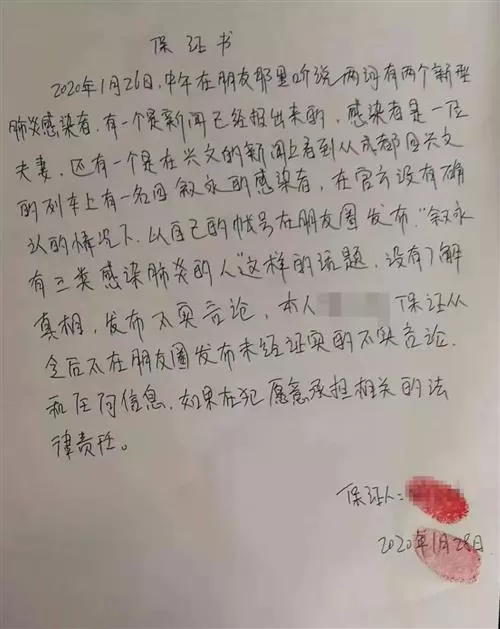 保证书
2020年1月26日，中午在朋友那里听说两河有两个新型
肺炎感染者，有一个是新闻已经报出来的，感染者是一位
夫妻，还有一个是在兴文的新闻上看到从成都回兴文
的列车上有一名回叙永的感染者，在官方没有确
认的情况下，以自己的帐号在朋友圈发布，“叙永
有三类感染肺炎的人”这样的话题，没有了解
真相，发布不实言论，本人 保证从
今后不在朋友圈发布未经证实的不实言论，
和任何信息，如果在犯愿意承担相关的法
律责任。
保证人：
2020年1月28日